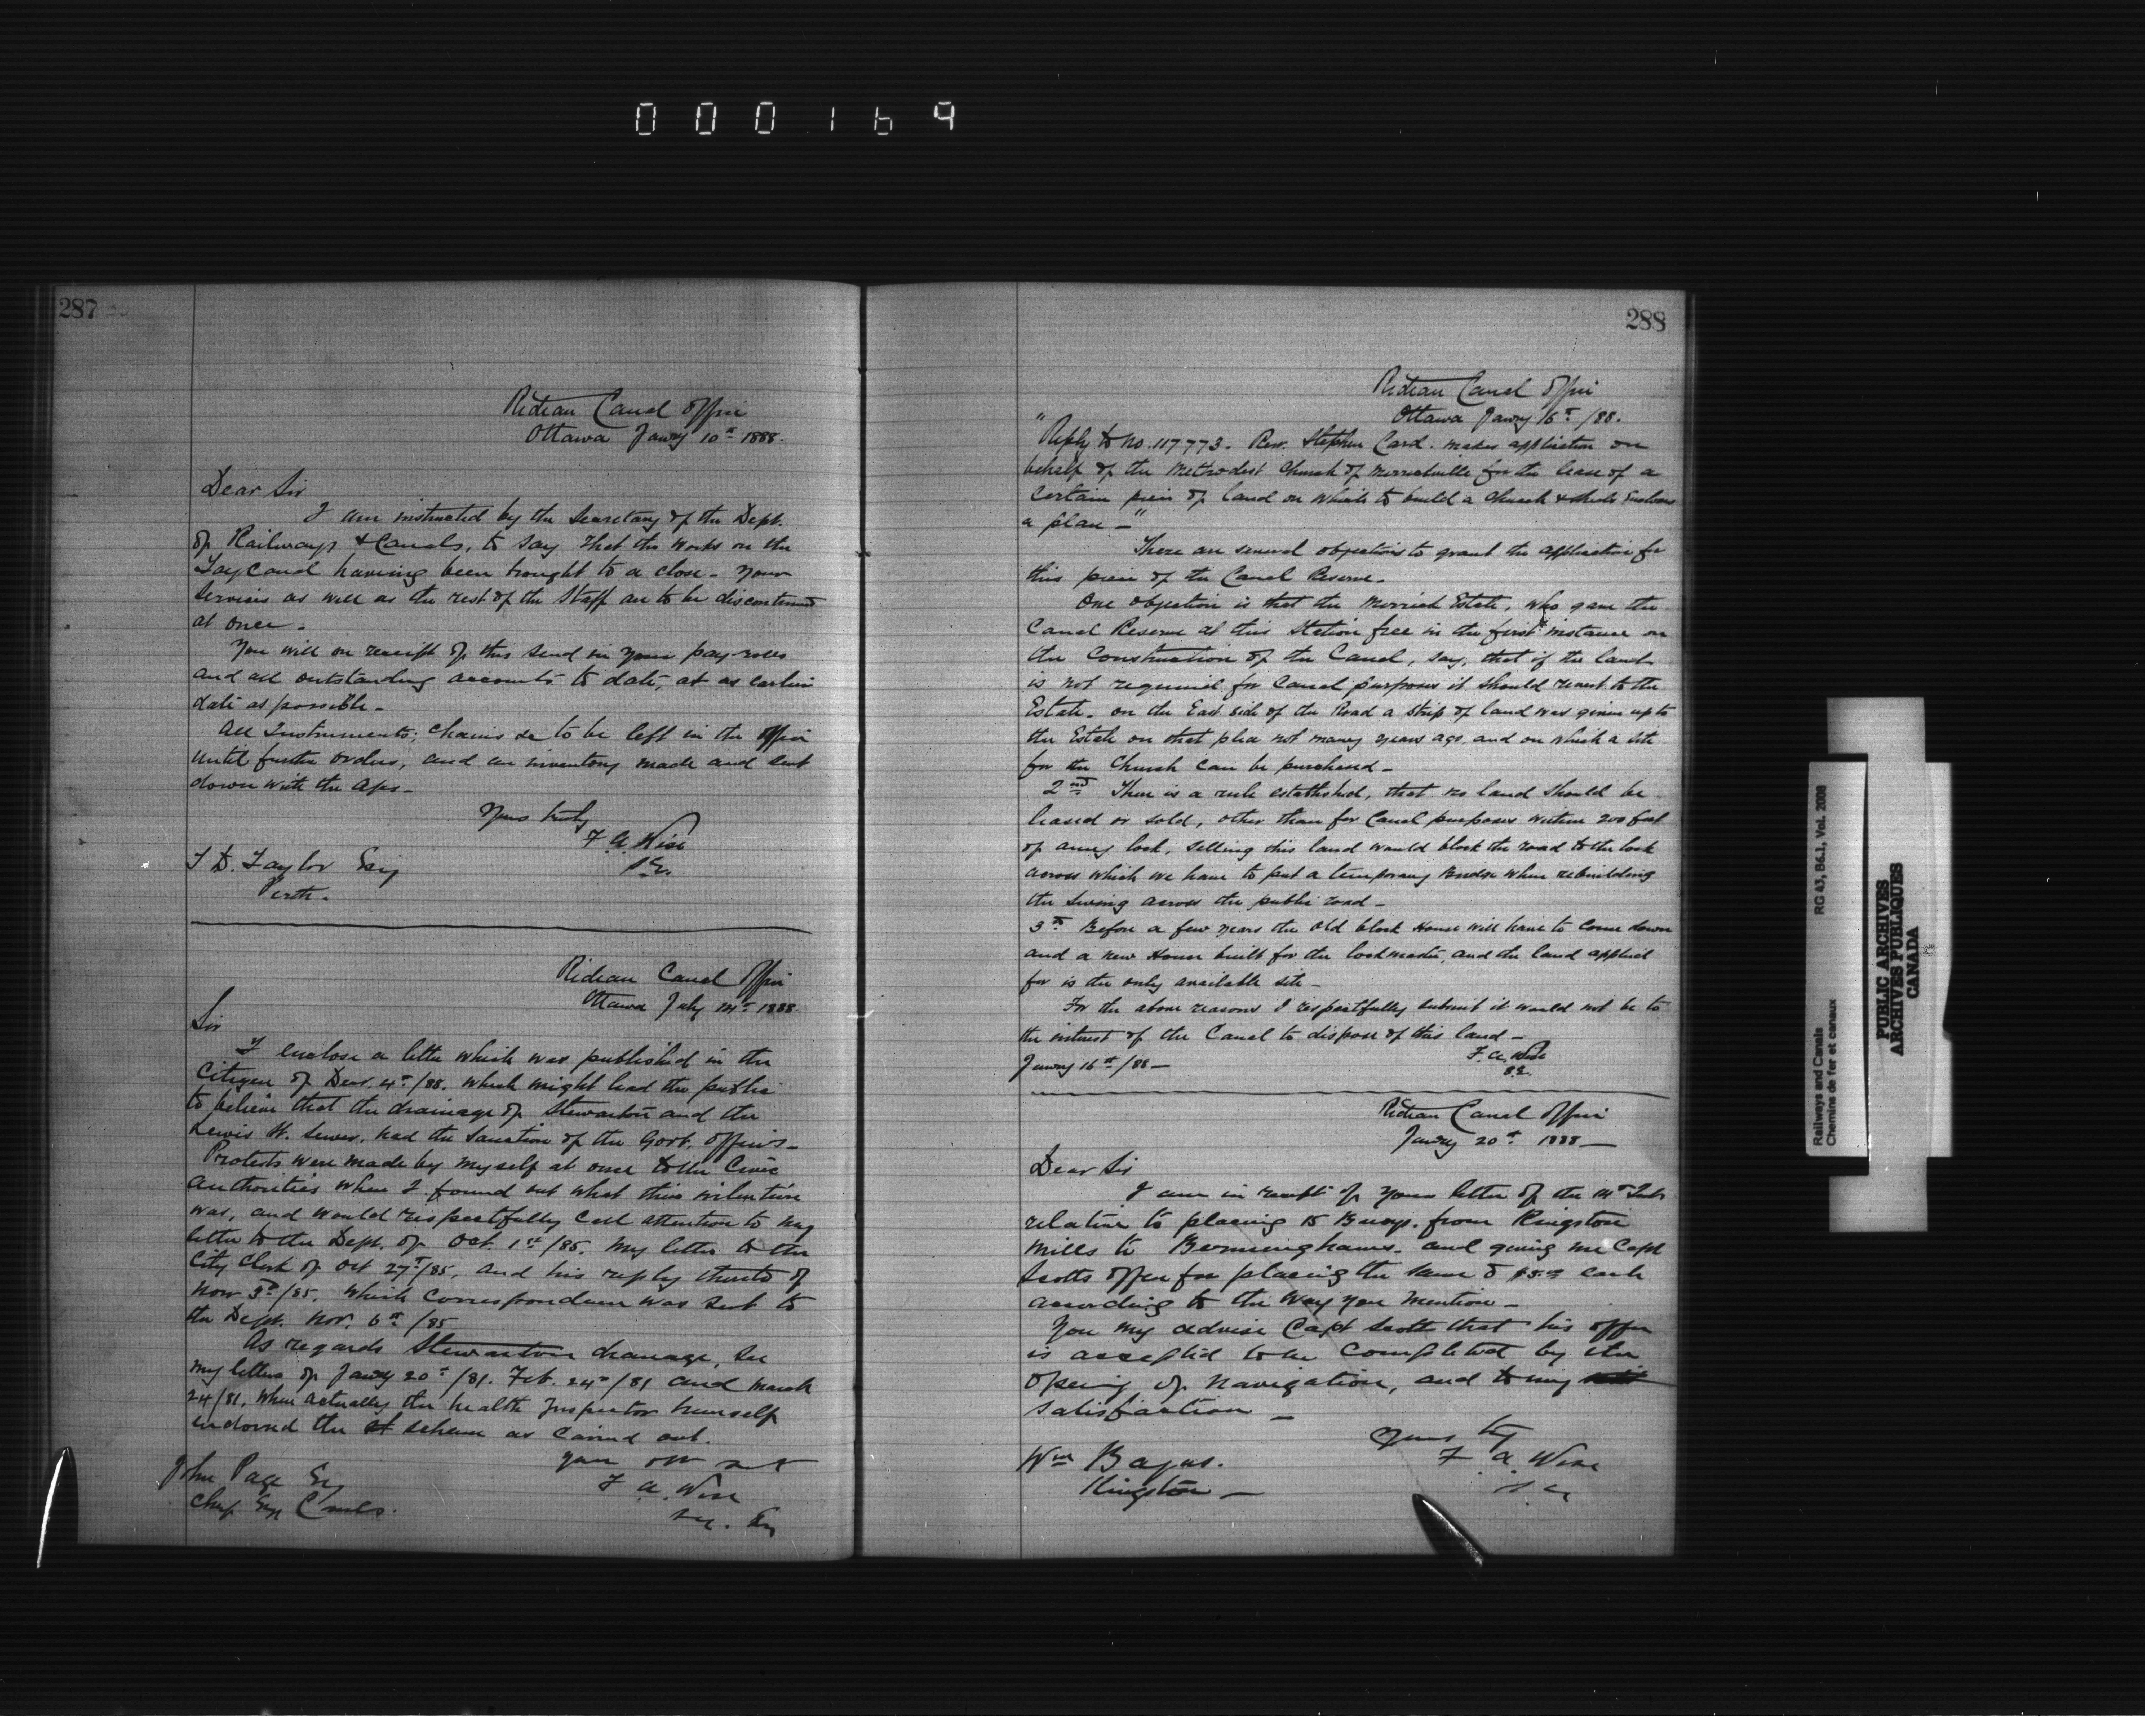 000169
287
Ridean Canal Office
Ottawa Jany 10th 1888.
Dear Sir
I am instructed by the Secretary of the Dept.
of Railways & Canals, to say that the works on the
Tay Canal having been brought to a close - Your
Services as well as the rest of the Staff are to be discontinued
at once.
You will on receipt of this send in your pay-rolls
and all outstanding accounts to date, at as earlier
date as possible -
All Instruments, Chains &c to be left in the Office
until further orders, and an inventory made and sent
down with the a/cs -
Yours truly
F. A. Wise
S.E.
T D. Taylor Esq
Perth.
Ridean Canal Office
Ottawa July 14th 1888
Sir
I enclose a letter which was published in the
Citizen of Decr. 4th /88. which might lead the public
to believe that the drainage of Stewarton and the
Lewis St. Sewer, had the Sanction of the Govt. Officers -
Protests were made by myself at once to the Civic
Authorities when I found out what their intention
was, and would respectfully call attention to my
letter to the Dept. of Oct. 1st /85. My letter to the
City Clerk of Oct 27th /85, and his reply thereto of
Nov 3rd /85. which correspondence was sent to
the Dept. Nov. 6th /85
As regards Stewarton drainage, see
my letters of Jany 20th /81. Feb. 24th /81 and March
24/81, when actually the health Inspector himself
endorsed the scheme as carried out.
F. A. Wise
John Page Esq
Chief Eng Canals.
288
Ridean Canal Office
Ottawa Jany 16th /88.
"Reply to No. 117773. Rev. Stephen Card. makes application on
behalf of the Methodist Church of Merrickville for the lease of a
certain piece of land on which to build a church & sheds Encloses
a plan -"
There are several objections to grant the application for
this piece of the Canal Reserve -
One objection is that the Merrick Estate, who gave the
Canal Reserve at this Station free in the first instance on
the construction of the Canal, say, that if the land
is not required for Canal purposes it should revert to the
Estate. on the East side of the Road a strip of land was given up to
the Estate on that plea not many years ago, and on which a site
for the Church can be purchased -
2nd There is a rule established, that no land should be
leased or sold, other than for Canal purposes within 200 feet
of any lock, selling this land would block the road to the lock
across which we have to put a temporary Bridge when rebuilding
the Swing across the public road -
3rd Before a few years the old block House will have to come down
and a new House built for the lockmaster, and the land applied
for is the only available site -
For the above reasons I respectfully submit it would not be to
the interest of the Canal to dispose of this land -
F. A. Wise
S.E.
Jany 16th /88 -
Ridean Canal Office
Jany 20th 1888 -
Dear Sir
I am in receipt of your letter of the 14th Inst
relative to placing 15 Buoys. from Kingston
Mills to Bermninghams - and giving me Capt
Scotts offer for placing the same @ $5.00 each
according to the way you mention -
You my advise Capt Scott that his offer
is accepted to be completed by the
opening of navigation, and to my
satisfaction -
Yours try
F. A. Wise
S. E.
Wm
Kingston -
Railways and Canals RG 43, B6.1, Vol. 2008
Chemins de fer et canaux
PUBLIC ARCHIVES
ARCHIVES PUBLIQUES
CANADA